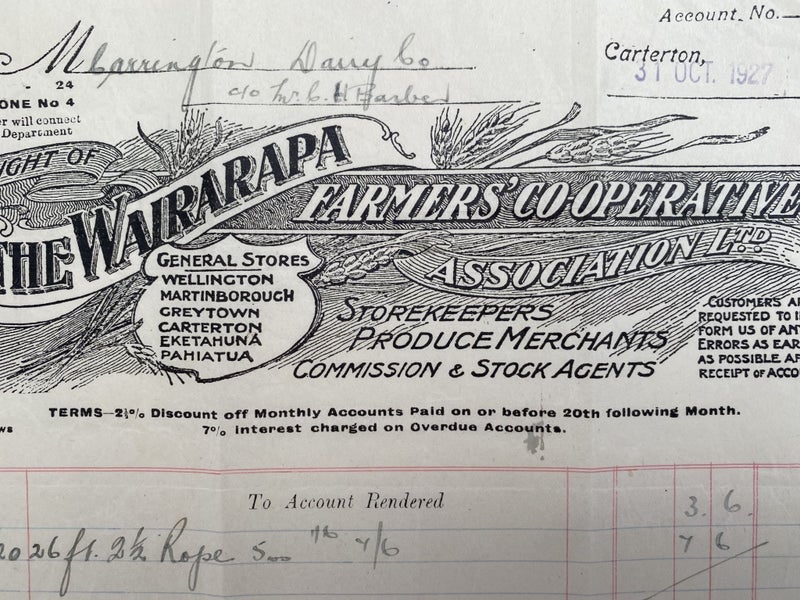 Account. No.
M Carrington Dairy Co
Carterton,
31 OCT. 1927
- 24
c/o Mr C. H Barber
ONE No 4
er will connect
Department
IGHT OF
THE WAIRARAPA
FARMERS' CO-OPERATIVE
ASSOCIATION LTD
GENERAL STORES
WELLINGTON
MARTINBOROUGH
GREYTOWN
CARTERTON
EKETAHUNA
PAHIATUA
STOREKEEPERS
PRODUCE MERCHANTS
COMMISSION & STOCK AGENTS
CUSTOMERS A
REQUESTED TO I
FORM US OF AN
ERRORS AS EAR
AS POSSIBLE AF
RECEIPT OF ACCO
TERMS—2½% Discount off Monthly Accounts Paid on or before 20th following Month.
ws
7% interest charged on Overdue Accounts.
To Account Rendered 3. 6.
20 26 ft. 2½ Rope 7/6 7 6